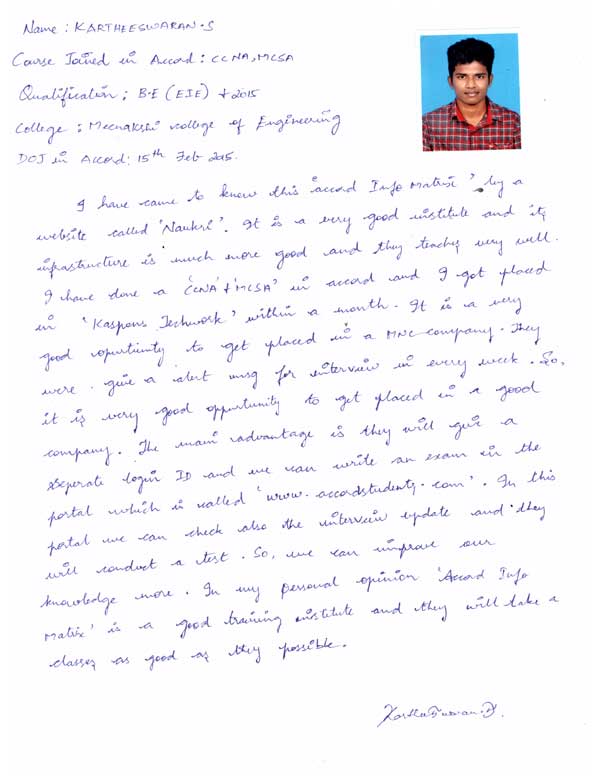 Name : KARTHEESWARAN.S
Course Joined in Accord : CCNA, MCSA
Qualification : B.E (EIE) + 2015
College : Meenakshi college of Engineering
DOJ in Accord : 15th Feb 2015.
I have came to know this 'accord Info Matrix' by a
website called 'Naukri'. It is a very good institute and its
infrastructure is much more good and they teaches very well.
I have done a 'CCNA' + 'MCSA' in accord and I got placed
in 'Kaspons Techwork' within a month. It is a very
good oportunity to get placed in a MNC company. They
were give a alert msg for interview in every week. So,
it is very good opportunity to get placed in a good
company. The main advantage is they will give a
seperate login ID and we can write an exam in the
portal which is called 'www.accordstudents.com'. In this
portal we can check also the interview update and they
will conduct a test. So, we can improve our
knowledge more. In my personal opinion 'Accord Info
Matrix' is a good training institute and they will take a
classes as good as they possible.